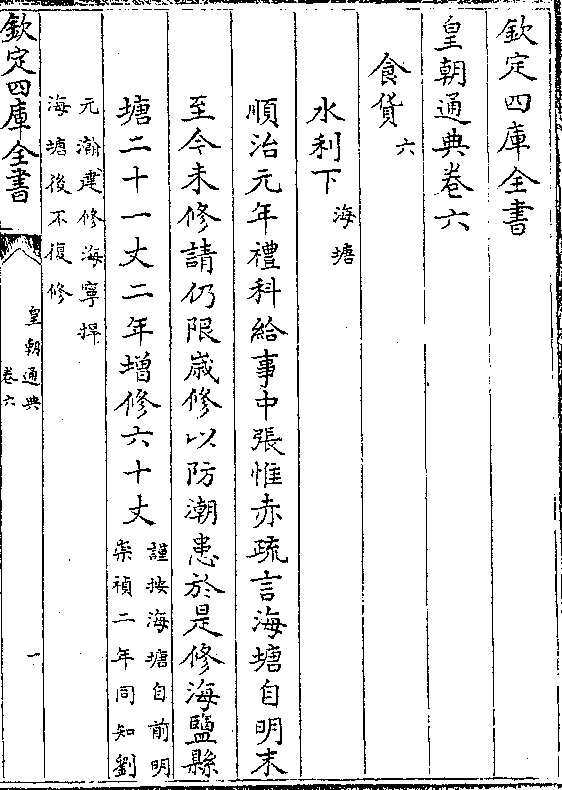 欽定四庫全書
皇朝通典卷六
食貨六
水利下海塘
順治元年禮科給事中張惟赤疏言海塘自明末
至今未修請仍限嵗修以防潮患於是修海鹽縣
塘二十一丈二年增修六十丈
謹按海塘自前明
崇禎二年同知劉
元瀚建修海寧捍
海塘後不復修
欽定四庫全書
皇朝通典
卷六
一